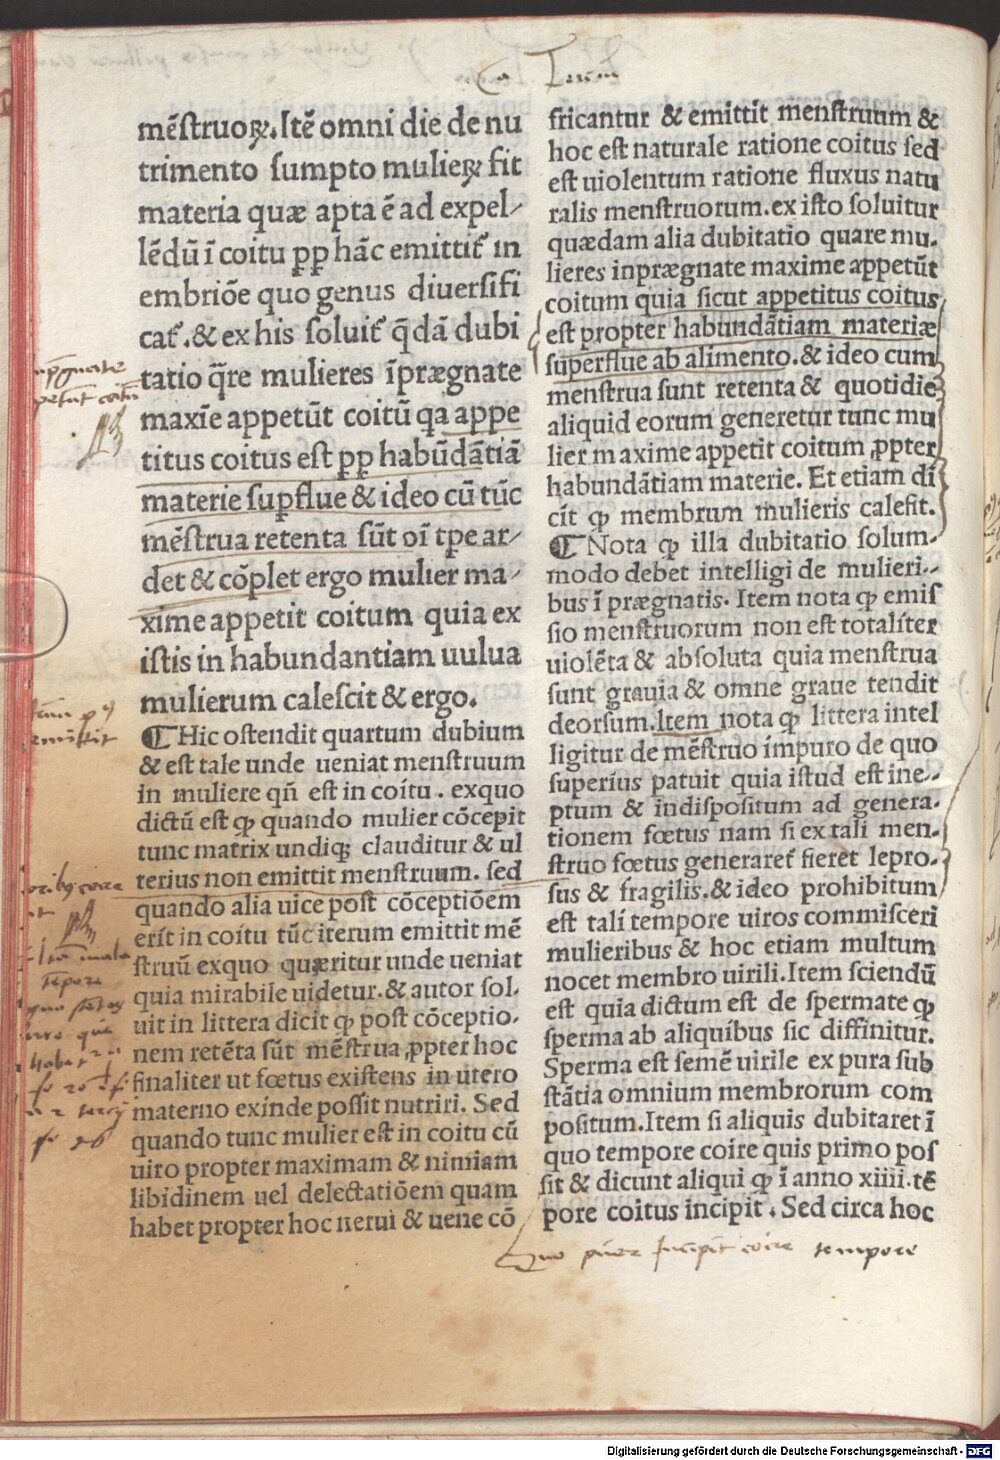 mēſtruoꝝ.Itē omni die de nu
trimento ſumpto mulieꝝ fit
materia quæ apta ē ad expel⸗
lēdū ī coitu ꝓp hāc emittit᷑ in
embriōe quo genus diuerſifi
cat᷑.& ex his ſoluit᷑ q̄dā dubi
tatio q̄re mulieres īprægnate
maxīe appetūt coitū qa appe
titus coitus eſt ꝓp habūdātiā
materie ſupflue & ideo cū tūc
mēſtrua retenta ſūt oī tꝑe ar⸗
det & cōplet ergo mulier ma⸗
xime appetit coitum quia ex
iſtis in habundantiam uulua
mulierum caleſcit & ergo.
¶ Hic oſtendit quartum dubium
& eſt tale unde ueniat menſtruum
in muliere qñ eſt in coitu . exquo
dictū eſt ꝙ quando mulier cōcepit
tunc matrix undiqꝫ clauditur & ul
terius non emittit menſtruum. ſed
quando alia uice poſt cōceptiōem
erit in coitu tūc iterum emittit mē
ſtruū exquo quæritur unde ueniat
quia mirabile uidetur.& autor ſol.
uit in littera dicit ꝙ poſt cōceptio.
nem retēta ſūt mēſtrua ꝓpter hoc
finaliter ut fœtus exiſtens in utero
materno exinde poſſit nutriri. Sed
quando tunc mulier eſt in coitu cū
uiro propter maximam & nimiam
libidinem uel delectatiōem quam
habet propter hoc nerui & uene cō
fricantur & emittit menſtruum &
hoc eſt naturale ratione coitus ſed
eſt uiolentum ratione fluxus natu
ralis menſtruorum.ex iſto ſoluitur
quædam alia dubitatio quare mu.
lieres inprægnate maxime appetūt
coitum quia ſicut appetitus coitus
eſt propter habundātiam materiæ
ſuperflue ab alimento.& ideo cum
menſtrua ſunt retenta & quotidie
aliquid eorum generetur tunc mu
lier maxime appetit coitum ꝓpter
habundātiam materie. Et etiam di
cit ꝙ membrum mulieris calefit.
¶ Nota ꝙ illa dubitatio ſolum.
modo debet intelligi de mulieri..
bus ī prægnatis. Item nota ꝙ emiſ
ſio menſtruorum non eſt totaliter
uiolēta & abſoluta quia menſtrua
ſunt grauia & omne graue tendit
deorſum.Item nota ꝙ littera intel
ligitur de mēſtruo impuro de quo
ſuperius patuit quia iſtud eſt ine..
ptum & indiſpoſitum ad genera.
tionem fœtus nam ſi ex tali men.
ſtruo fœtus generaret᷑ fieret lepro.
ſus & fragilis.& ideo prohibitum
eſt tali tempore uiros commiſceri
mulieribus & hoc etiam multum
nocet membro uirili.Item ſciendū
eſt quia dictum eſt de ſpermate ꝙ
ſperma ab aliquibus ſic diffinitur.
Sperma eſt ſemē uirile ex pura ſub
ſtātia omnium membrorum com
poſitum.Item ſi aliquis dubitaret ī
quo tempore coire quis primo poſ
ſit & dicunt aliqui ꝙ ī anno xiiii.tē
pore coitus incipit . Sed circa hoc
coire tempore
Digitalisierung gefördert durch die Deutsche Forschungsgemeinschaft - DFG